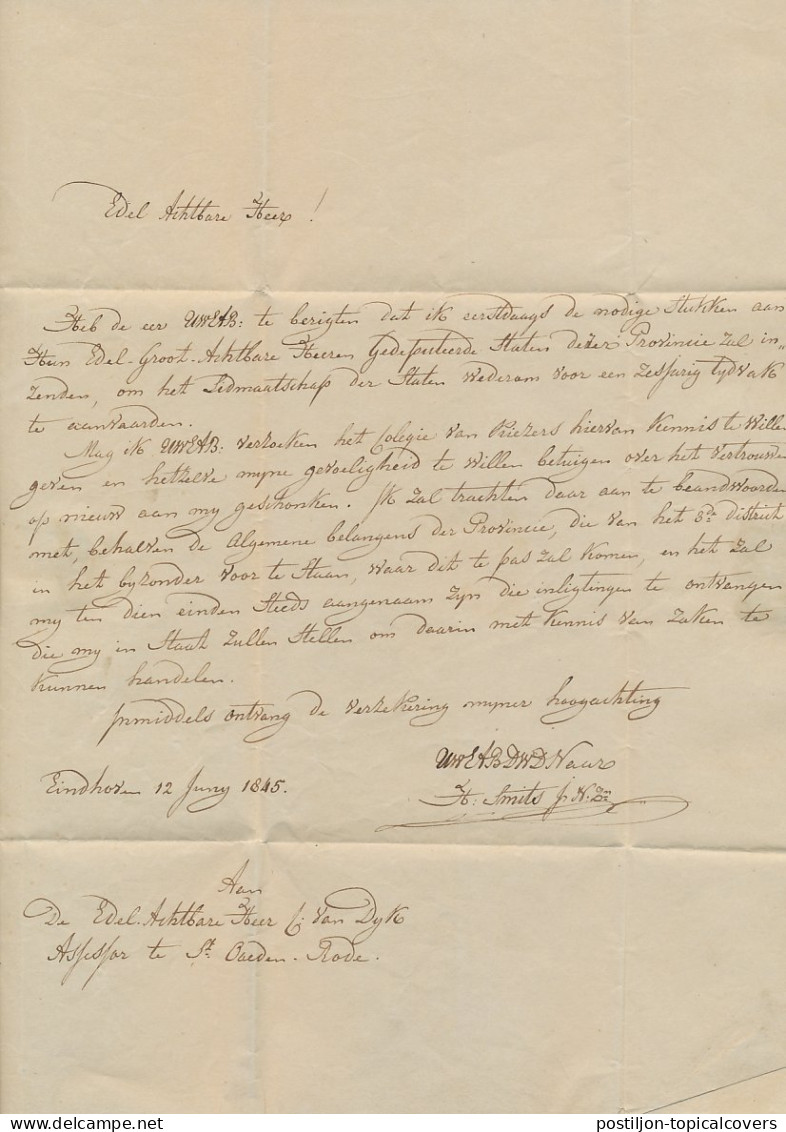 Edel Achtbare Heer!
Heb de eer UWEAB: te berigten dat ik eerstdaags de nodige Stukken aan
Hun Edel-Groot-Achtbare Heeren Gedeputeerde Staten dezer Provincie zal in„
zenden, om het Lidmaatschap der Staten wederom voor een zesjarig tydvak
te aanvaarden.
Mag ik UWEAB: verzoeken het Colegie van Kiezers hiervan kennis te willen
geven en hetzelve myne gevoeligheid te willen betuigen over het vertrouwen
op nieuw aan my geschonken. Ik zal trachten daar aan te beandwoorden
met, behalven de Algemene belangens der Provincie, die van het 8de district
in het byzonder voor te Staan, waar dit te pas zal komen, en het zal
my ten dien einden Steeds aangenaam zyn die inligtingen te ontvangen
die my in Staat zullen Stellen om daarin met kennis van zaken te
kunnen handelen.
Inmiddels ontvang de verzekering myner hoogachting
UWEABDWDNaar
H: Smits J.N.Zn
Eindhoven 12 Juny 1845.
Aan
De Edel-Achtbare Heer C: van Dyk
Assessor te St. Oeden-Rode.
postiljon-topicalcovers